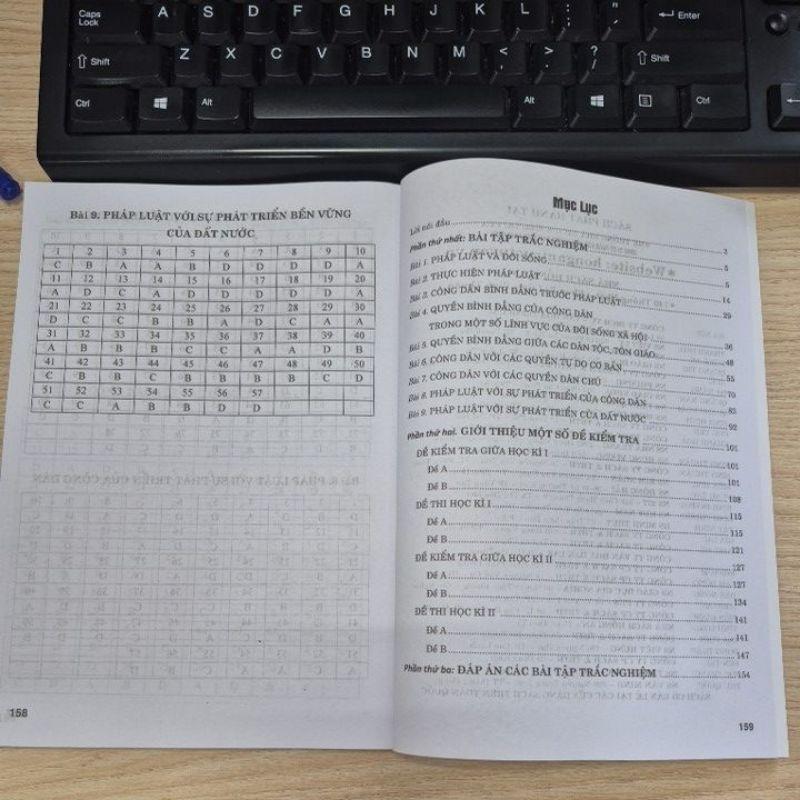 Caps Lock A S D F G H J K L : ; " ' Enter
Shift Z X C V B N M < , > . ? / Shift
Ctrl Alt Alt Ctrl
Bài 9. PHÁP LUẬT VỚI SỰ PHÁT TRIỂN BỀN VỮNG
CỦA ĐẤT NƯỚC
1 2 3 4 5 6 7 8 9 10
C B A A B D D D D A
11 12 13 14 15 16 17 18 19 20
A D C A D D D D D A
21 22 23 24 25 26 27 28 29 30
D C C B B A D C A A
31 32 33 34 35 36 37 38 39 40
A B B B C C A A D B
41 42 43 44 45 46 47 48 49 50
C B C B B B B B C D
51 52 53 54 55 56 57
C C A B B D D
158
Mục Lục
Lời nói đầu 3
Phần thứ nhất: BÀI TẬP TRẮC NGHIỆM 5
Bài 1. PHÁP LUẬT VÀ ĐỜI SỐNG 5
Bài 2. THỰC HIỆN PHÁP LUẬT 14
Bài 3. CÔNG DÂN BÌNH ĐẲNG TRƯỚC PHÁP LUẬT 29
Bài 4. QUYỀN BÌNH ĐẲNG CỦA CÔNG DÂN
TRONG MỘT SỐ LĨNH VỰC CỦA ĐỜI SỐNG XÃ HỘI 36
Bài 5. QUYỀN BÌNH ĐẲNG GIỮA CÁC DÂN TỘC, TÔN GIÁO 48
Bài 6. CÔNG DÂN VỚI CÁC QUYỀN TỰ DO CƠ BẢN 55
Bài 7. CÔNG DÂN VỚI CÁC QUYỀN DÂN CHỦ 70
Bài 8. PHÁP LUẬT VỚI SỰ PHÁT TRIỂN CỦA CÔNG DÂN 83
Bài 9. PHÁP LUẬT VỚI SỰ PHÁT TRIỂN CỦA ĐẤT NƯỚC 92
Phần thứ hai. GIỚI THIỆU MỘT SỐ ĐỀ KIỂM TRA 101
ĐỀ KIỂM TRA GIỮA HỌC KÌ I 101
Đề A 101
Đề B 108
ĐỀ THI HỌC KÌ I 115
Đề A 115
Đề B 121
ĐỀ KIỂM TRA GIỮA HỌC KÌ II 127
Đề A 127
Đề B 134
ĐỀ THI HỌC KÌ II 141
Đề A 141
Đề B 147
Phần thứ ba: ĐÁP ÁN CÁC BÀI TẬP TRẮC NGHIỆM 154
159